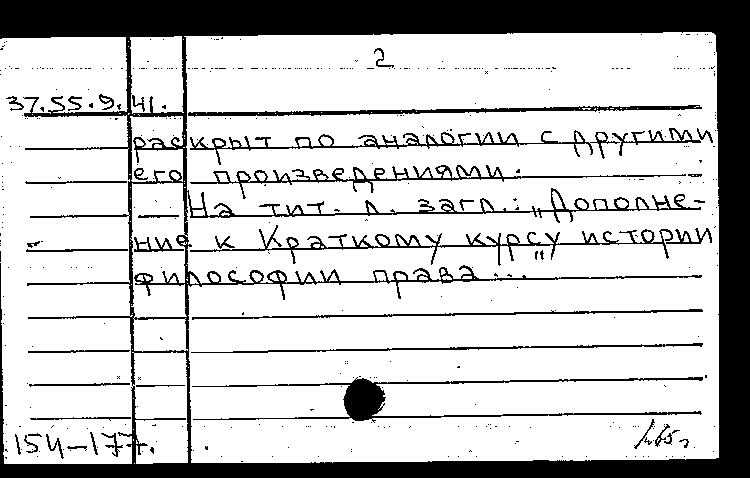 2
37.55.9.41.
раскрыт по аналогии с другими
его произведениями.
На тит. л. загл.: „Дополне-
ние к Краткому курсу истории
философии права..."
154-177.